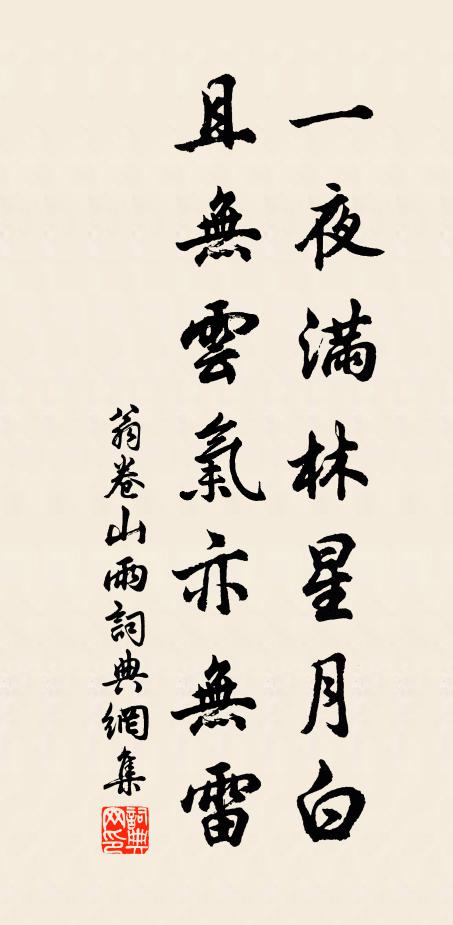 一夜滿林星月白
且無雲氣亦無雷
翁卷山雨詞典網集
詞典網印